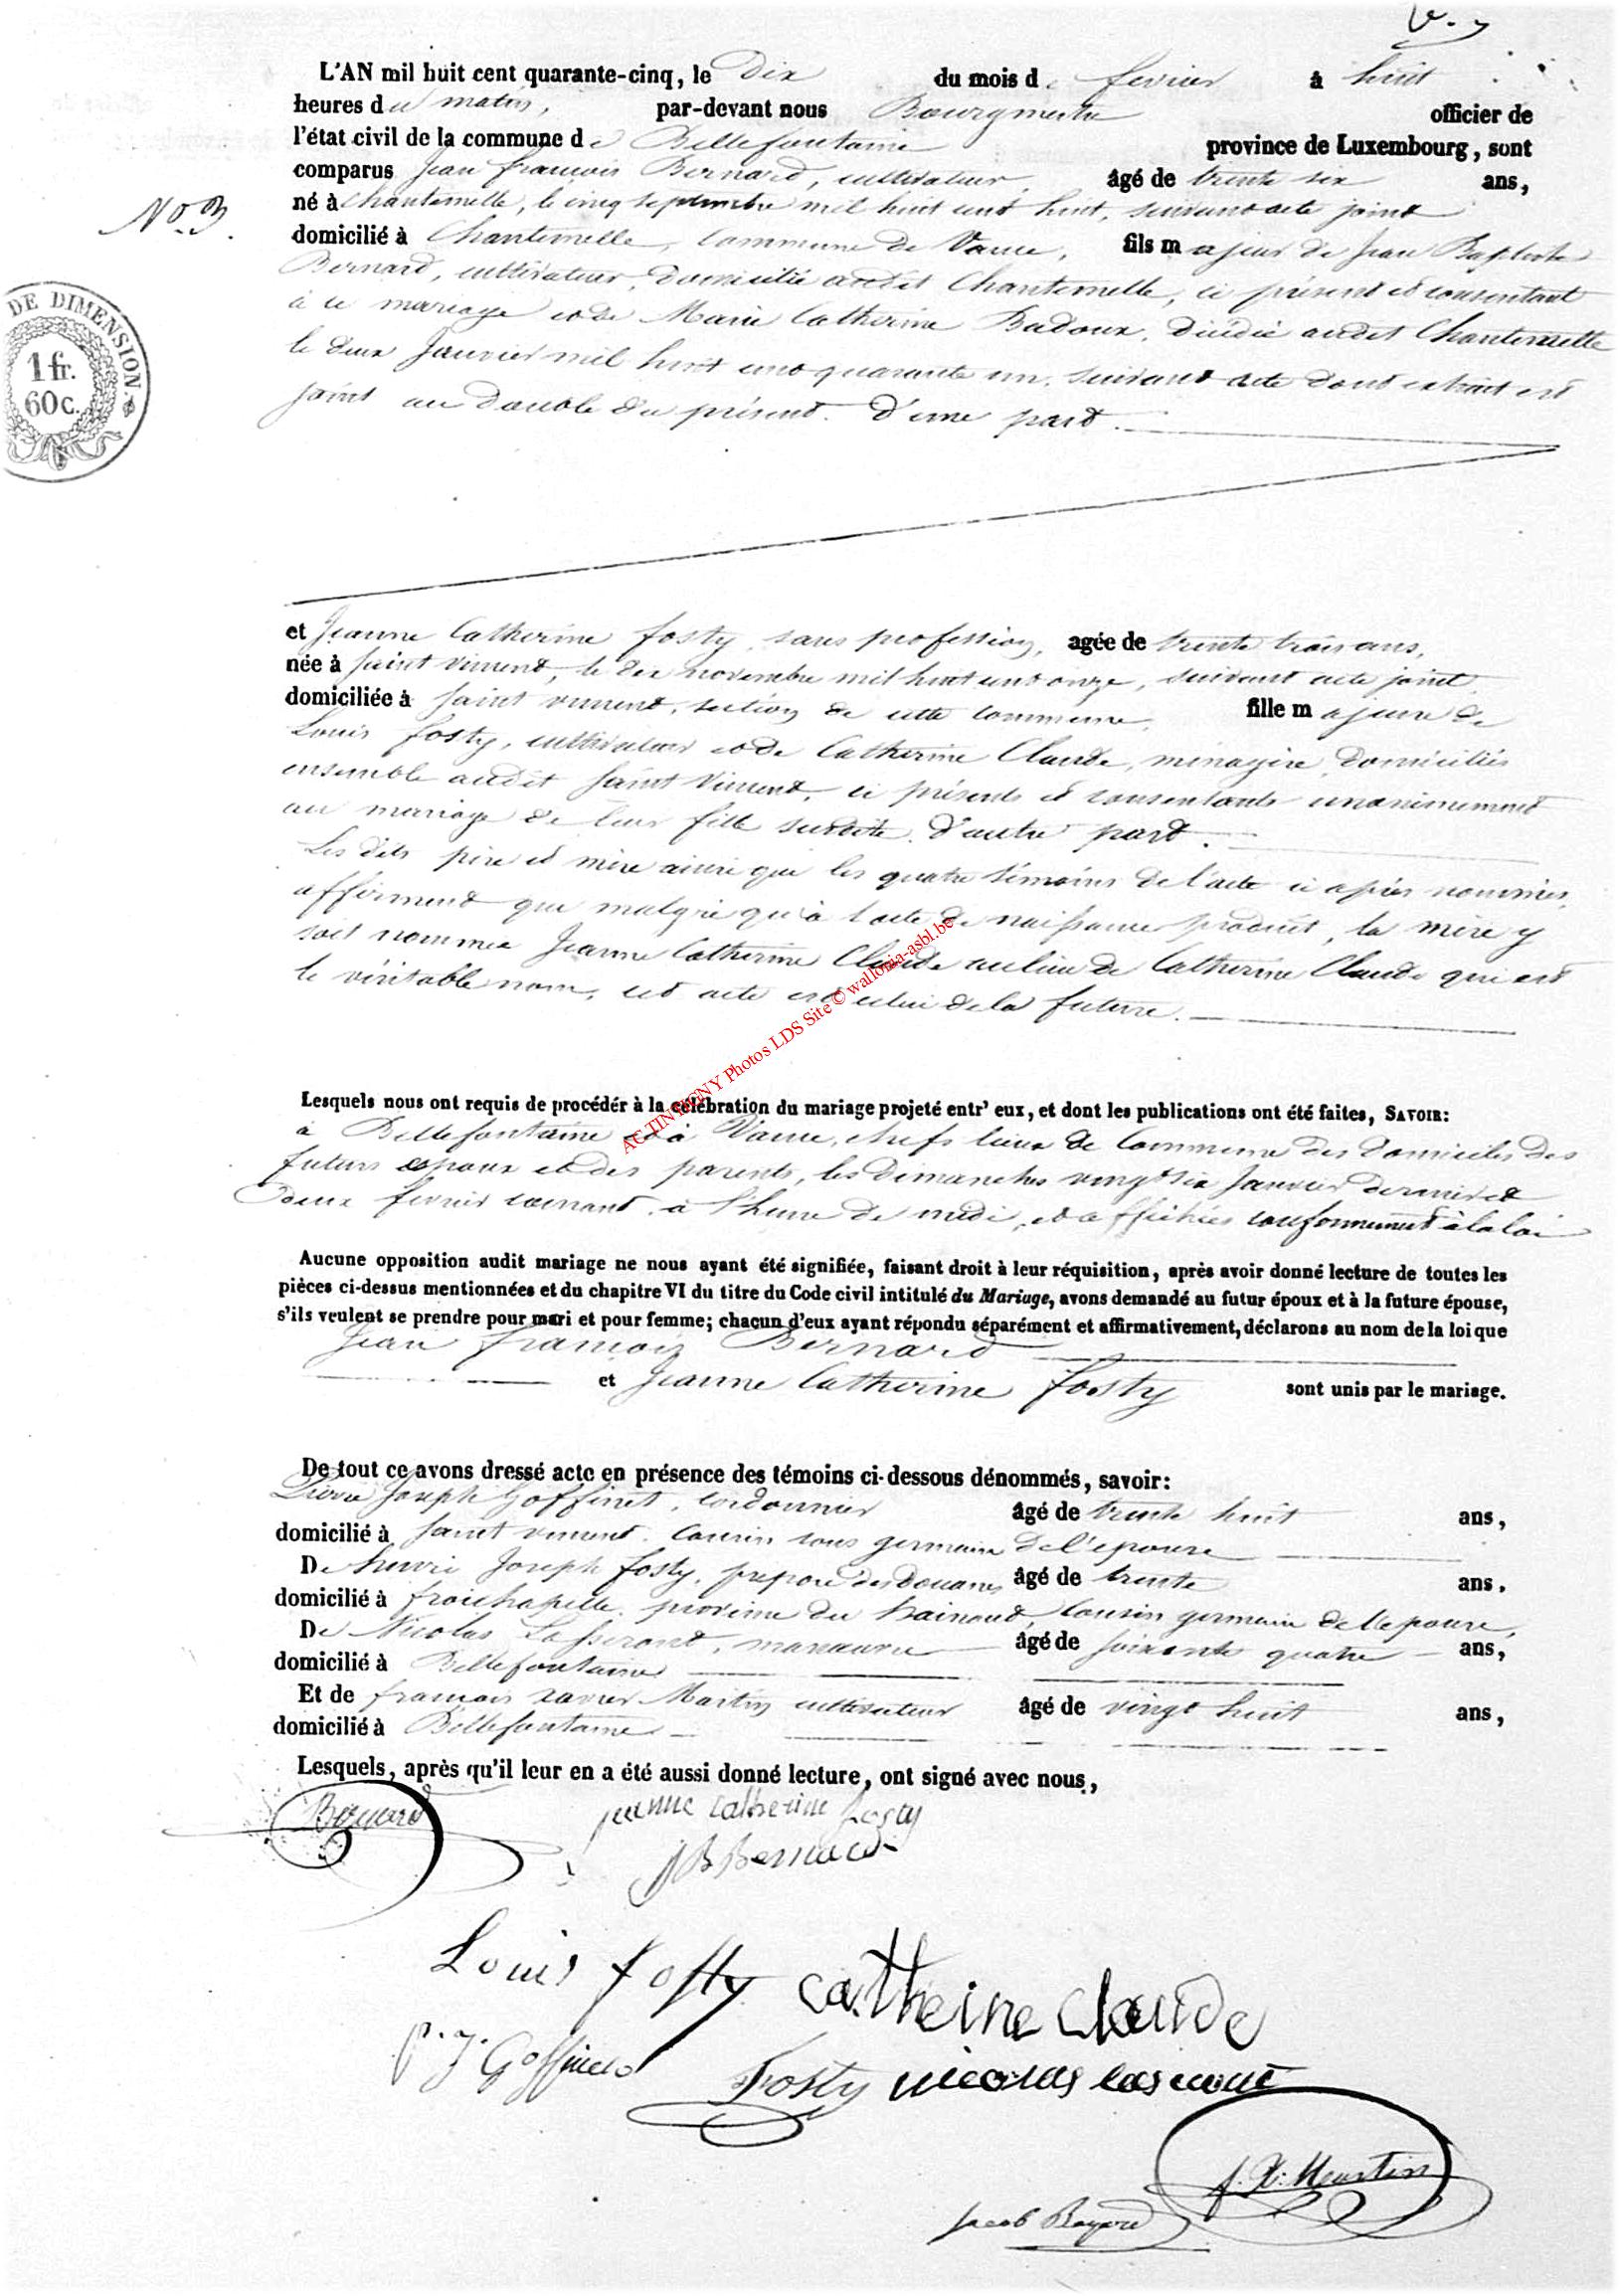 L'AN mil huit cent quarante-cinq, le dix du mois de fevrier à huit
heures du matin, par-devant nous Bourgmestre officier de
l'état civil de la commune de Bellefontaine province de Luxembourg, sont
comparus Jean françois Bernard, cultivateur, âgé de trente six ans,
No. 3.
né à Chantemelle, le cinq septembre mil huit cent huit, suivant acte joint
domicilié à Chantemelle, Commune de Vance, fils majeur de Jean Baptiste
Bernard, cultivateur, domicilié audit Chantemelle, ci présent et consentant
à ce mariage et de Marie Catherine Badoux, décédée audit Chantemelle
le deux Janvier mil huit cent quarante un, suivant acte dont extrait est
joint au double du présent. D'une part.
DE DIMENSION
1 fr.
60 c.
et Jeanne Catherine fosty, sans profession, agée de trente trois ans,
née à saint vincent, le dix novembre mil huit cent onze, suivant acte joint
domiciliée à saint vincent, section de cette commune, fille majeure de
Louis fosty, cultivateur et de Catherine Claude, ménagère, domiciliés
ensemble audit saint Vincent, ci présents et consentants unanimement
au mariage de leur fille susdite. d'autre part.
Les dits père et mère ainsi que les quatre témoins de l'acte ci après nommés,
affirment que malgré qu'à l'acte de naissance produit, la mère y
soit nommée Jeanne Catherine Claude au lieu de Catherine Claude qui est
le véritable nom, cet acte est celui de la future.
AC TINTIGNY Photos LDS Site © wallonia-asbl.be
Lesquels nous ont requis de procédér à la celébration du mariage projeté entr' eux, et dont les publications ont été faites, SAVOIR:
à Bellefontaine et à Vance, chefs lieux de Commune des domiciles des
futurs époux et des parents, les Dimanches vingt six Janvier dernier et
Deux fevrier courant, à l'heure de midi, et affichées conformement à la loi
Aucune opposition audit mariage ne nous ayant été signifiée, faisant droit à leur réquisition, après avoir donné lecture de toutes les
pièces ci-dessus mentionnées et du chapitre VI du titre du Code civil intitulé du Mariage, avons demandé au futur époux et à la future épouse,
s'ils veulent se prendre pour mari et pour femme; chacun d'eux ayant répondu séparément et affirmativement, déclarons au nom de la loi que
Jean françois Bernard
et Jeanne Catherine Fosty sont unis par le mariage.
De tout ce avons dressé acte en présence des témoins ci-dessous dénommés, savoir:
Pierre Joseph Goffinet, cordonnier âgé de trente huit ans,
domicilié à saint vincent, Cousin sous germain de l'épouse
De henri Joseph fosty, préposé des Douanes âgé de trente ans,
domicilié à froichapelle, province du hainaut, Cousin germain de l'épouse,
De Nicolas manœuvre âgé de soixante quatre ans,
domicilié à Bellefontaine
Et de françois xavier Martin cultivateur âgé de vingt huit ans,
domicilié à Bellefontaine
Lesquels, après qu'il leur en a été aussi donné lecture, ont signé avec nous,
Bernard jeanne catherine fosty
JB Bernard
Louis fosty catheine claude
P. J. Goffinet
Fosty nicolas
f. X. Martin
Jacob Bayard